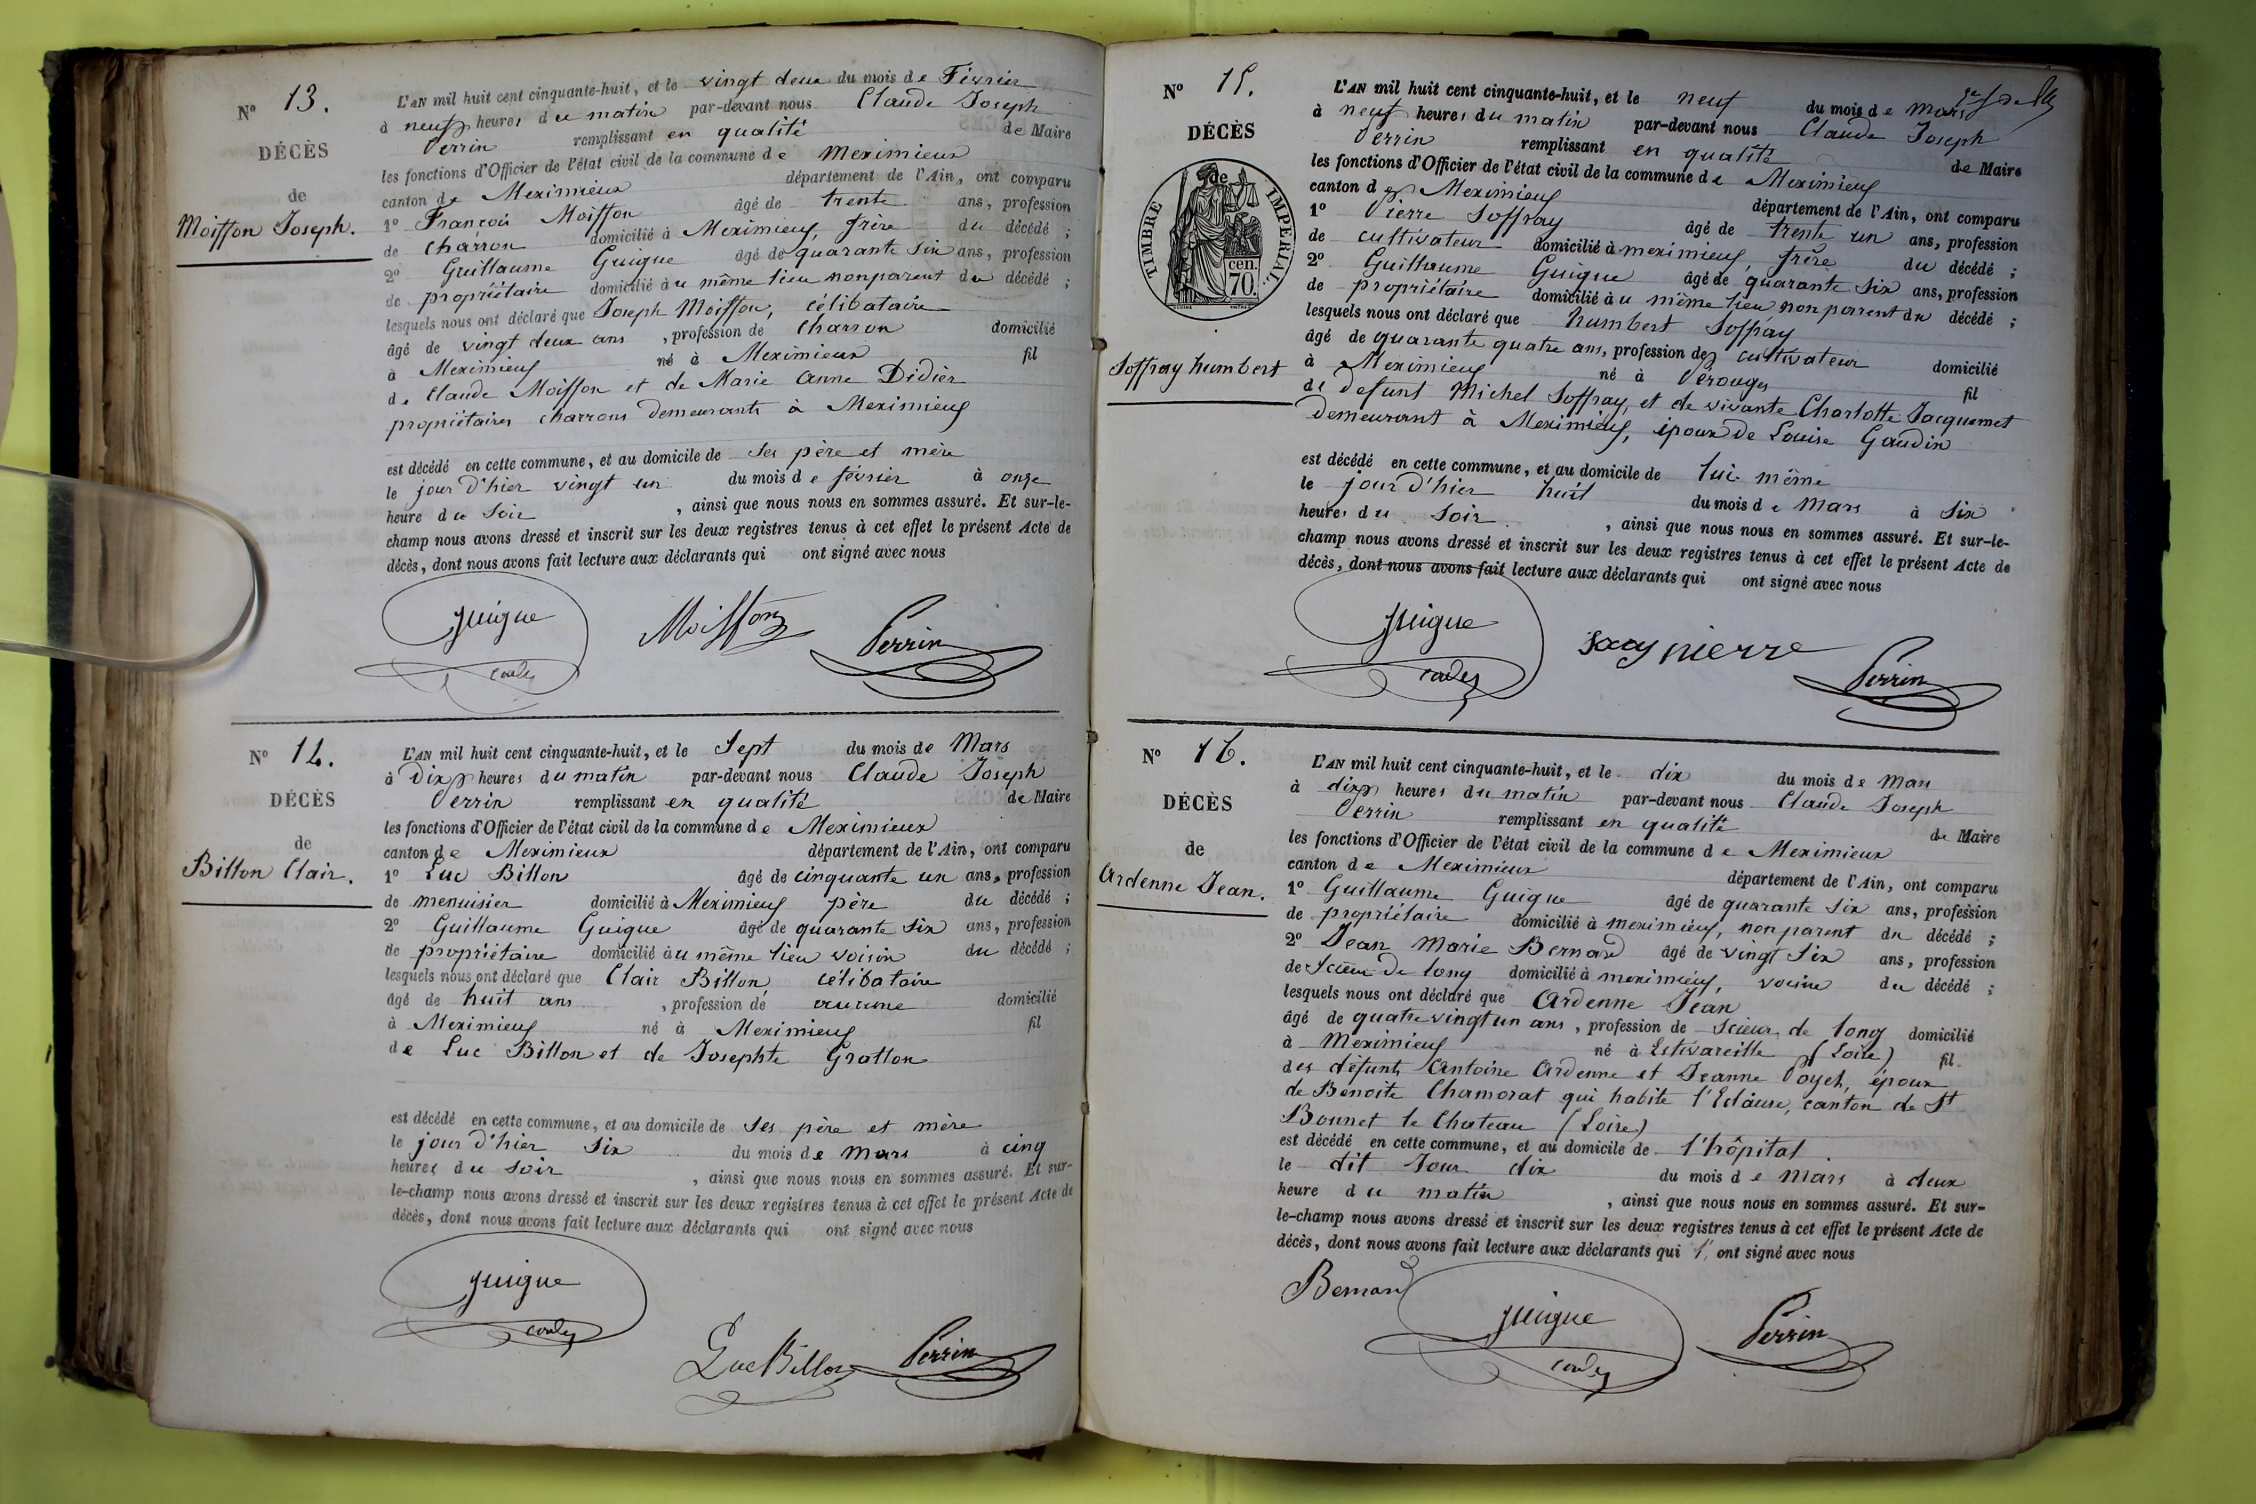 N° 13.
DÉCÈS
de
Moiffon Joseph.
L'AN mil huit cent cinquante-huit, et le vingt deux du mois de Février
à neuf heures du matin par-devant nous Claude Joseph
Perrin remplissant en qualité de Maire
les fonctions d'Officier de l'état civil de la commune de Meximieux
canton de Meximieux département de l'Ain, ont comparu
1° François Moiffon âgé de trente ans, profession
de charron domicilié à Meximieux, frère du décédé ;
2° Guillaume Guigue âgé de quarante six ans, profession
de propriétaire domicilié au même lieu non parent du décédé ;
lesquels nous ont déclaré que Joseph Moiffon, célibataire
âgé de vingt deux ans, profession de charron domicilié
à Meximieux né à Meximieux fil
de Claude Moiffon et de Marie Anne Didier
propriétaires charrons demeurants à Meximieux
est décédé en cette commune, et au domicile de ses père et mère
le jour d'hier vingt un du mois de février à onze
heure du soir, ainsi que nous nous en sommes assuré. Et sur-le-
champ nous avons dressé et inscrit sur les deux registres tenus à cet effet le présent Acte de
décès, dont nous avons fait lecture aux déclarants qui ont signé avec nous
guigue
Moiffon
Perrin
N° 14.
DÉCÈS
de
Billon Clair.
L'AN mil huit cent cinquante-huit, et le sept du mois de Mars
à dix heures du matin par-devant nous Claude Joseph
Perrin remplissant en qualité de Maire
les fonctions d'Officier de l'état civil de la commune de Meximieux
canton de Meximieux département de l'Ain, ont comparu
1° Luc Billon âgé de cinquante un ans, profession
de menuisier domicilié à Meximieux père du décédé ;
2° Guillaume Guigue âgé de quarante six ans, profession
de propriétaire domicilié au même lieu voisin du décédé ;
lesquels nous ont déclaré que Clair Billon, célibataire
âgé de huit ans, profession de aucune domicilié
à Meximieux né à Meximieux fil
de Luc Billon et de Josephte Gratton
est décédé en cette commune, et au domicile de ses père et mère
le jour d'hier six du mois de mars à cinq
heures du soir, ainsi que nous nous en sommes assuré. Et sur-
le-champ nous avons dressé et inscrit sur les deux registres tenus à cet effet le présent Acte de
décès, dont nous avons fait lecture aux déclarants qui ont signé avec nous
guigue
Luc Billon
Perrin
N° 15.
DÉCÈS
de
TIMBRE IMPÉRIAL.
70 cen.
Soffray humbert
L'AN mil huit cent cinquante-huit, et le neuf du mois de Mars
à neuf heures du matin par-devant nous Claude Joseph
Perrin remplissant en qualité de Maire
les fonctions d'Officier de l'état civil de la commune de Meximieux
canton de Meximieux département de l'Ain, ont comparu
1° Pierre Soffray âgé de trente un ans, profession
de cultivateur domicilié à meximieux, frère du décédé ;
2° Guillaume Guigue âgé de quarante six ans, profession
de propriétaire domicilié au même lieu, non parrent du décédé ;
lesquels nous ont déclaré que humbert Soffray
âgé de quarante quatre ans, profession de cultivateur domicilié
à Meximieux né à Pérouges fil
de defunt Michel Soffray, et de vivante Charlotte Jacquemet
demeurant à Meximieux, époux de Louise Gaudin
est décédé en cette commune, et au domicile de lui même
le jour d'hier huit du mois de Mars à six
heures du soir, ainsi que nous nous en sommes assuré. Et sur-le-
champ nous avons dressé et inscrit sur les deux registres tenus à cet effet le présent Acte de
décès, dont nous avons fait lecture aux déclarants qui ont signé avec nous
guigue
pierre
Perrin
N° 16.
DÉCÈS
de
Ardenne Jean.
L'AN mil huit cent cinquante-huit, et le dix du mois de Mars
à dix heures du matin par-devant nous Claude Joseph
Perrin remplissant en qualité de Maire
les fonctions d'Officier de l'état civil de la commune de Meximieux
canton de Meximieux département de l'Ain, ont comparu
1° Guillaume Guigue âgé de quarante six ans, profession
de propriétaire domicilié à meximieux, non parent du décédé ;
2° Jean Marie Bernard âgé de vingt six ans, profession
de Scieur de long domicilié à meximieux, voisin du décédé ;
lesquels nous ont déclaré que Ardenne Jean
âgé de quatre vingt un ans, profession de scieur de long domicilié
à Meximieux né à Estivareille (Loire) fil
des défunts Antoine Ardenne et Jeanne Poyet, époux
de Benoite Chamorat qui habite l'Eclause, canton de St
Bonnet le Chateau (Loire)
est décédé en cette commune, et au domicile de l'hôpital
le dit jour dix du mois de Mars à deux
heure du matin, ainsi que nous nous en sommes assuré. Et sur-
le-champ nous avons dressé et inscrit sur les deux registres tenus à cet effet le présent Acte de
décès, dont nous avons fait lecture aux déclarants qui l' ont signé avec nous
Bernard
guigue
Perrin